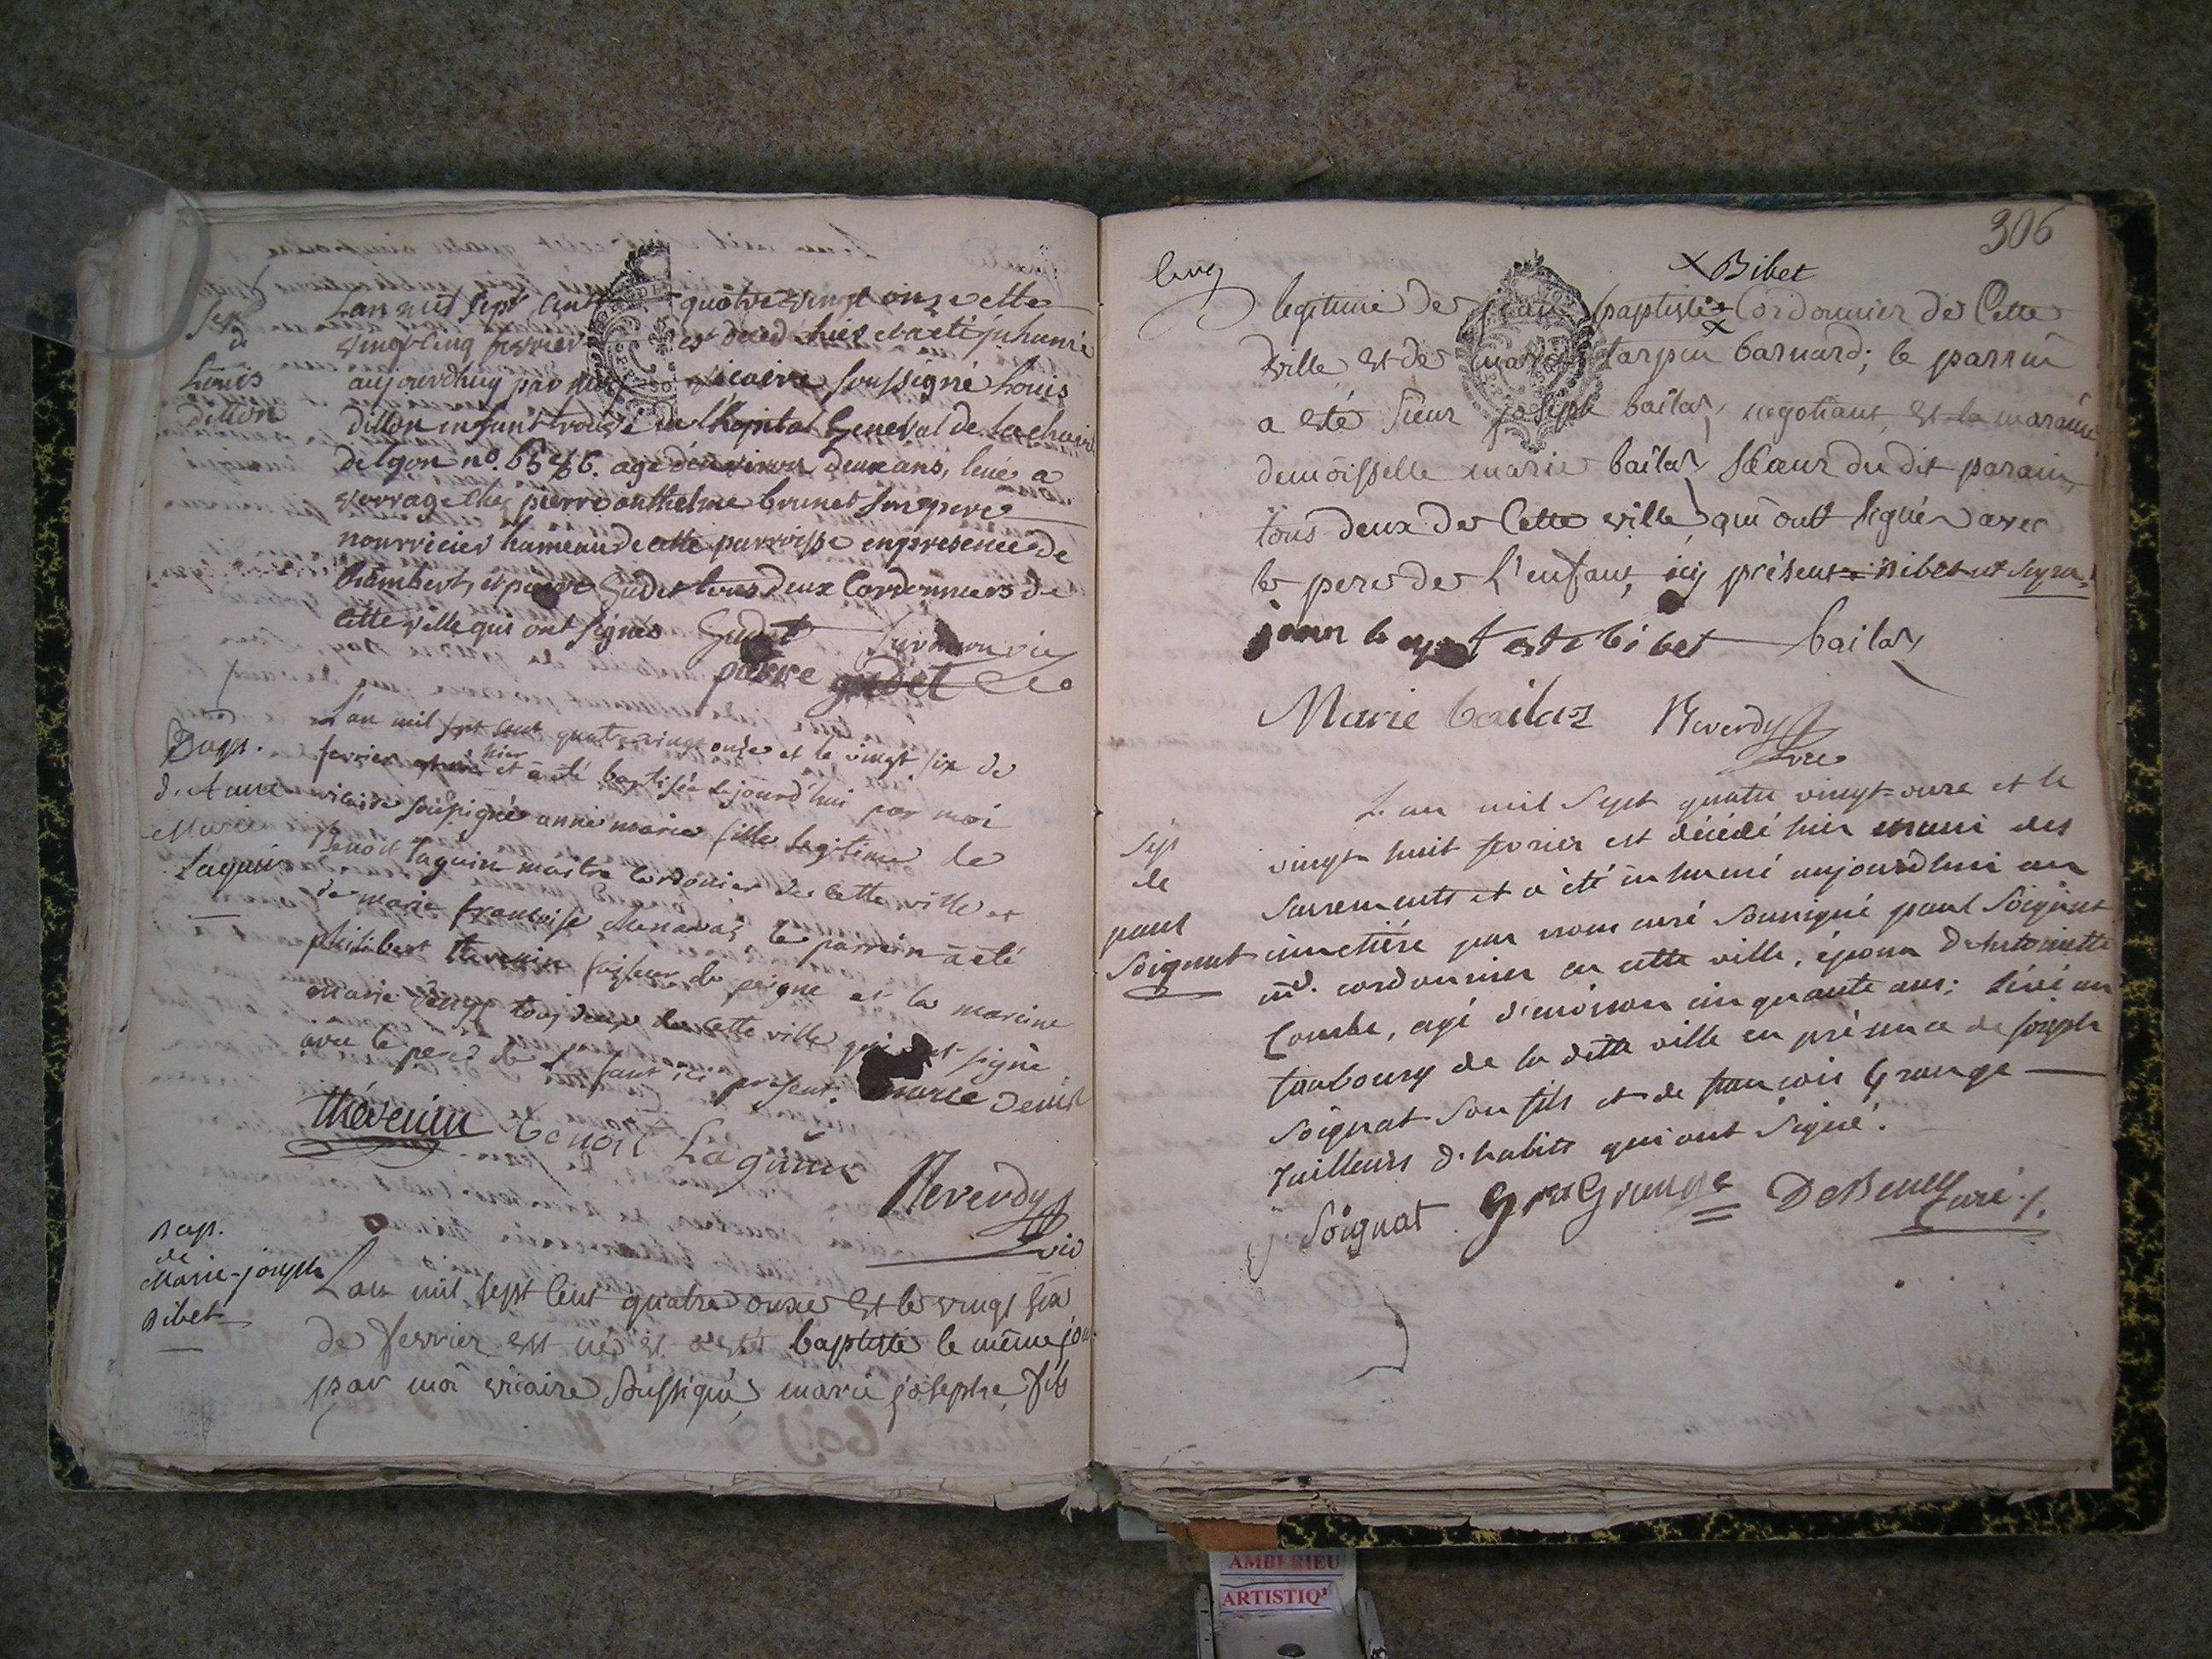 Sep
de
Louis
dillon
L'an mil sept cent quatre vingt onze et le
vingt cinq fevrier est deced hier et a eté inhumé
aujourdhuy par vicaire soussigné Louis
dillon enfant trouvé de l'hopital General de la charité
de lyon no. agé d'environ deux ans, levé a
chez pierre anthelme brunet son pere
nourricier hameau de cette parroisse en presence de
chambert, et pierre Gudet tous deux Cordonniers de
cette ville qui ont signés Gudet
pierre gudet
Bapt.
d'Anne
Marie
Laguin
L'an mil sept cent quatre vingt onze et le vingt six de
fevrier hier et a été baptisée aujourd'hui par moi
vicaire soussigné anne marie fille legitime de
Benoit laguin maitre Cordonier de cette ville et
de marie françoise le parrein a été
philibert thevenin faiseur de peigne et la mareine
Marie Denys tous deux de cette ville qui ont signé
avec le pere de l'enfant ici présent. marie Denis
thévenin benoit Laguin
Reverdy
vic
Bap.
de
Marie-joseph
Bibet
L'an mil sept cent quatre onze et le vingt six
de fevrier est né et a été baptisté le même jour
par moi vicaire soussigné, marie josephe, fils
306
× Bibet
legitime de jean baptiste × Cordonnier de Cette
ville et de tarpin barnard; le parrin
a été sieur joseph bailas, negotiant, et la maraine
demoisselle marie bailas, sœur du dit parain,
tous deux de Cette ville, qui ont signé avec
le pere de l'enfant, icy présent Bibet
jean batiste bibet bailas
Marie bailas Reverdy
vic
Sep
de
paul
Soignat
L'an mil sept quatre vingt-onze et le
vingt huit fevrier est décédé hier muni des
sacrements et a été inhumé aujourd'hui au
cimetière par nous curé soussigné paul Soignat
md. cordonnier en cette ville, époux d'Antoinette
Combe, agé d'environ cinquante ans; levé au
faubourg de la dite ville en présence de joseph
Soignat son fils et de françois Grange
tailleurs d'habits qui ont signé.
j. Soignat Grange DeBeney Curé
AMBERIEU
ARTISTIQ